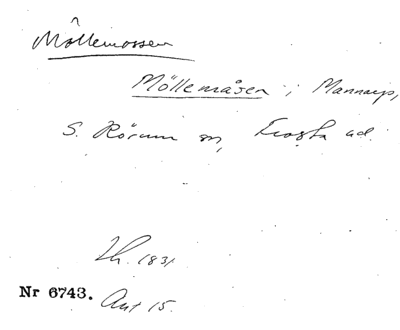 Möllemossen
Möllemåsen i Mannarp,
S. Rörum sn, Frosta hd.
Lh. 1831
Nr 6743. Ant 15.